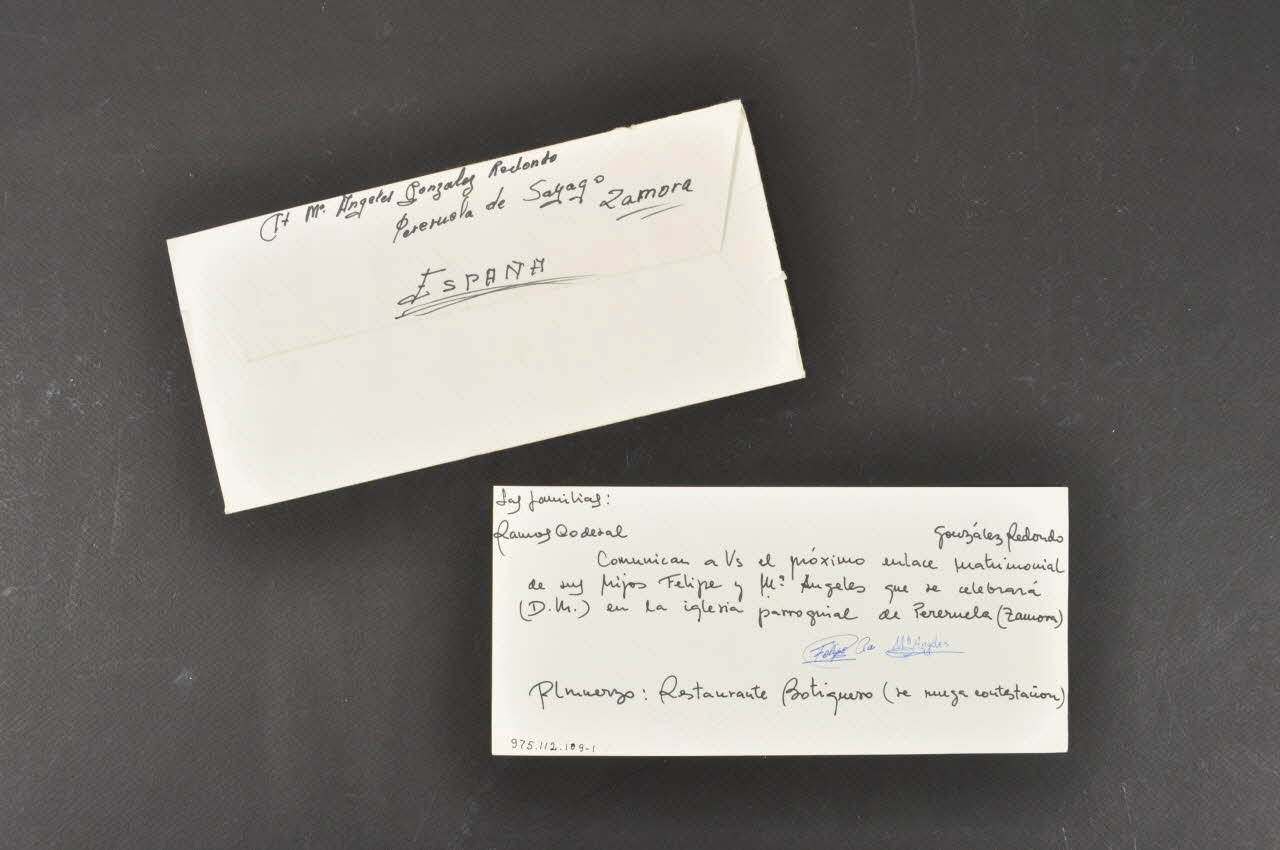 Mª. Angeles Gonzalez Redondo
Pereruela de Sayago Zamora
ESPAÑA
Las familias:
Ramos González Redondo
Comunican a Vs el próximo enlace matrimonial
de sus hijos Felipe y Mª Angeles que se celebrará
(D.M.) en la iglesia parroquial de Pereruela (Zamora)
Felipe Mª Angeles
Almuerzo: Restaurante Botiguero (se ruega contestación)
975.112.109-1